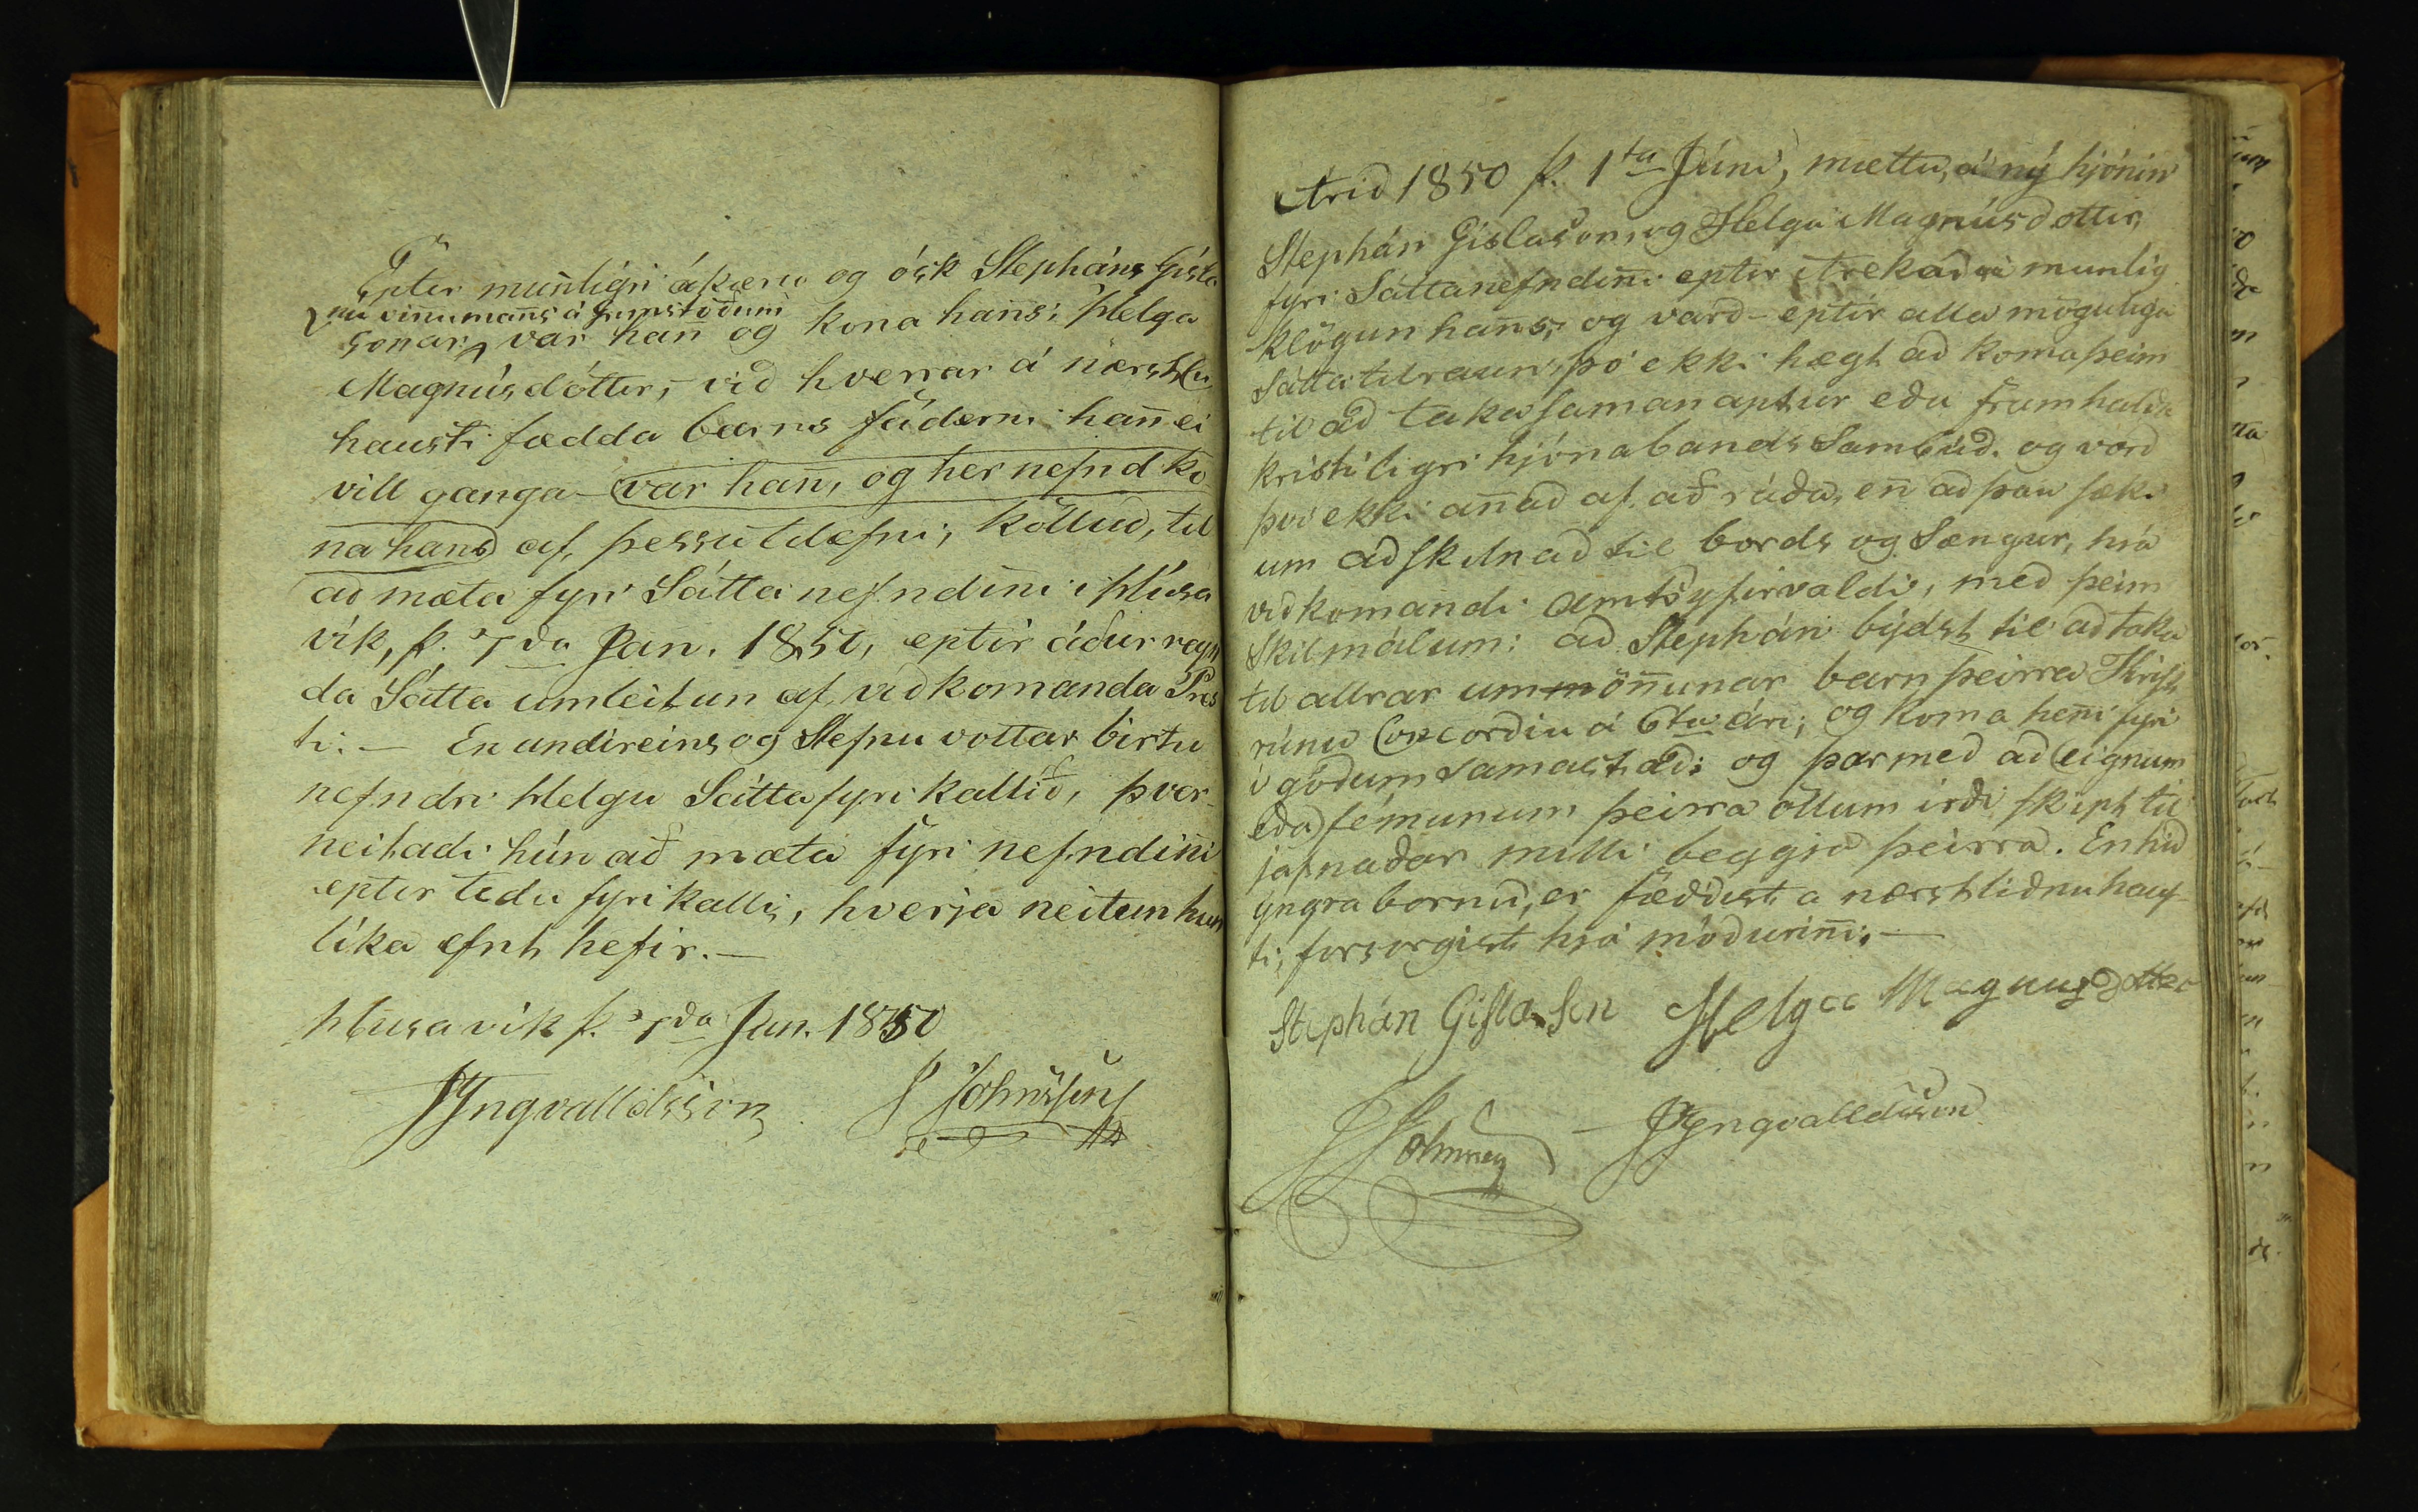 Eptir munnligri ákæru og ósk Stepháns Gísla
nú vinnumans á
sonar, var han̄ og kona hans: Helga
Magnúsdóttir, við hverrar á næstl:
hausti fædda barns fáderni han̄ ei
vill ganga – var han̄, og her nefnd ko
na hans af þessu tilefni, kölluð, til
að mæta fyri Sátta nefndin̄i i Húsa
vik, þ. 7da Jan. 1850, eptir áður reyn
da Sátta umleitun af viðkomanda Pres
ti. — En undireins og Stefnu vottar birtu
nefndri Helgu Sátta fyrikallið, þver-
neitadi hún að mæta fyri nefndin̄i
eptir tédu fyrikalli, hverja neitun hun
lika efnt hefir. —
Husavik þ. 7da Jan. 1850
JYngvalldsson S Johnsen
Arið 1850 þ. 1ta Júni, mættu, á ný hjónin
Stephán Gislason, og Helga Magnúsdottir,
fyri Sáttanefndin̄i eptir itrekaðri munlig
klögun han̄s, og varð – eptir alla möguliga
Sátta tilraun, þó ekki hægt að koma þeim
til að taka saman aptur eða framhalda
kristiligri hjónabands Sambúð. og varð
því ekki an̄að af að ráða, en̄ að þau sæki
um aðskilnað til bords og Sængur, hiá
viðkomandi amtsyfirvaldi, með þeim
Skilmálum: að Stephán býdst til að taka
til allrar umön̄unar barn þeirra Krist
rúnu Concordiu á 6ta ári; og koma hen̄i fyri
i góðum samastað; og þar með að eignum
eða fémunum þeirra ollum irði skipt til
jafnaðar milli beggia þeirra. En hið
yngra barnið, er fæddist a næstliðnu haus
ti, forsorgist hiá móðurin̄i. —
Stephán Gislason Helga Magnusdotter
S Johnsen JYngvalldsson